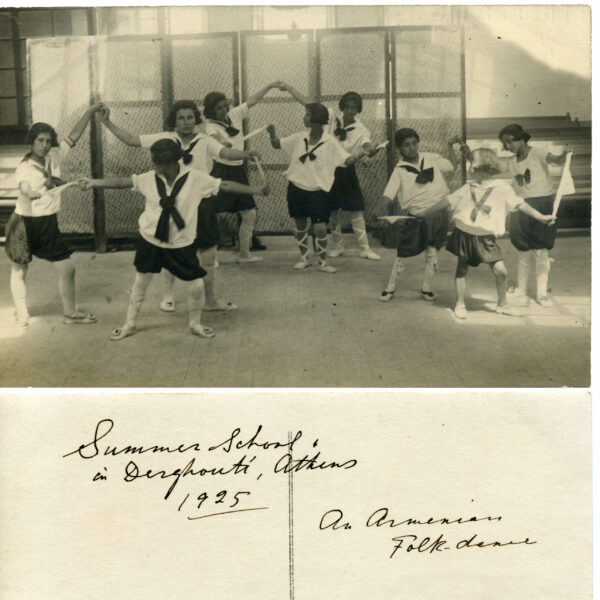 Summer School
in Derghouti, Athens
1925
An Armenian
Folk-dance